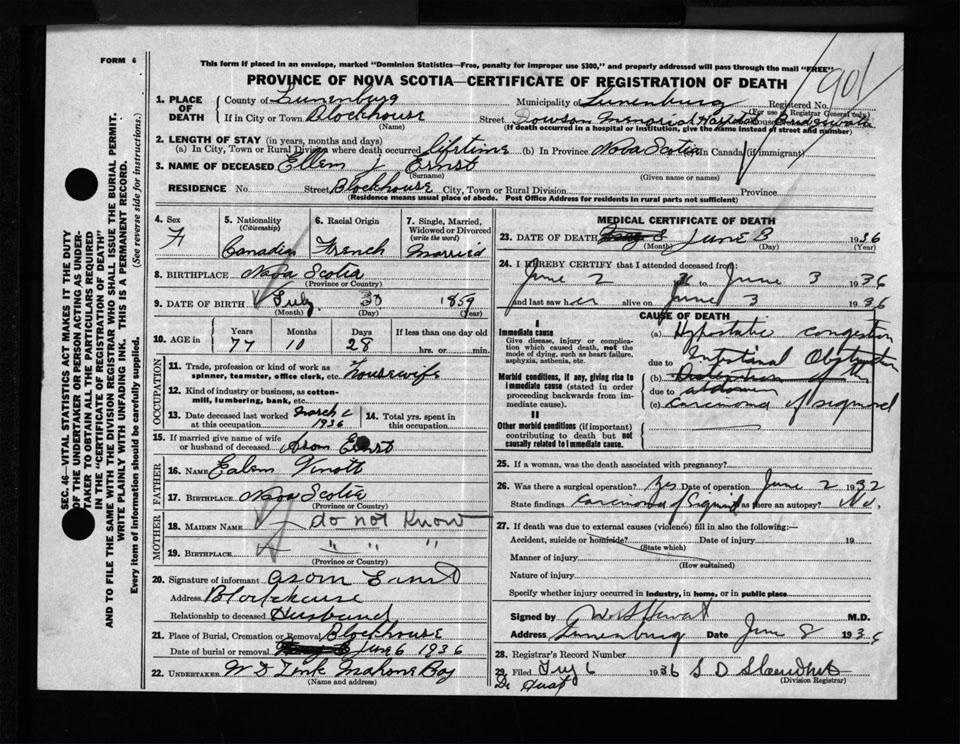 FORM 6
This form if placed in an envelope, marked "Dominion Statistics—Free, penalty for improper use $300," and properly addressed will pass through the mail "FREE"
PROVINCE OF NOVA SCOTIA—CERTIFICATE OF REGISTRATION OF DEATH
901
1. PLACE OF DEATH
County of Lunenburg
Municipality of Lunenburg
Registered No.
(For use of Registrar General only)
If in City or Town Blockhouse
(Name)
Street Dowson Memorial Hospital House Bridgewater
(If death occurred in a hospital or institution, give the name instead of street and number)
2. LENGTH OF STAY (in years, months and days)
(a) In City, Town or Rural Division where death occurred lifetime (b) In Province Nova Scotia In Canada (if immigrant)
3. NAME OF DECEASED Ellen J Ernst
(Surname) (Given name or names)
RESIDENCE No. Street Blockhouse City, Town or Rural Division Province
(Residence means usual place of abode. Post Office Address for residents in rural parts not sufficient)
4. Sex
F
5. Nationality
(Citizenship)
Canadian
6. Racial Origin
French
7. Single, Married, Widowed or Divorced
(write the word)
Married
8. BIRTHPLACE Nova Scotia
(Province or Country)
9. DATE OF BIRTH July 30 1859
(Month) (Day) (Year)
10. AGE in
Years Months Days If less than one day old
77 10 28 hrs. or min.
OCCUPATION
11. Trade, profession or kind of work as spinner, teamster, office clerk, etc. Housewife
12. Kind of industry or business, as cotton-mill, lumbering, bank, etc.
13. Date deceased last worked at this occupation March 1936
14. Total yrs. spent in this occupation
15. If married give name of wife or husband of deceased Ernst
FATHER
16. NAME
17. BIRTHPLACE Nova Scotia
(Province or Country)
MOTHER
18. MAIDEN NAME do not know
19. BIRTHPLACE " " "
(Province or Country)
20. Signature of informant Ernst
Address Blockhouse
Relationship to deceased Husband
21. Place of Burial, Cremation or Removal Blockhouse
Date of burial or removal June 6 1936
22. UNDERTAKER W D Zink Mahone Bay
(Name and address)
MEDICAL CERTIFICATE OF DEATH
23. DATE OF DEATH June 3 1936
(Month) (Day) (Year)
24. I HEREBY CERTIFY that I attended deceased from
June 2 to June 3 1936
and last saw her alive on June 3 1936
CAUSE OF DEATH
I
Immediate cause
Give disease, injury or complication which caused death, not the mode of dying, such as heart failure, asphyxia, asthenia, etc.
(a) Hypostatic congestion
due to Intestinal Obstruction
Morbid conditions, if any, giving rise to immediate cause (stated in order proceeding backwards from immediate cause).
(b)
due to
(c) Carcinoma of sigmoid
II
Other morbid conditions (if important) contributing to death but not causally related to immediate cause.
25. If a woman, was the death associated with pregnancy?
26. Was there a surgical operation? Yes Date of operation June 2 1932
State findings Carcinoma of Sigmoid Was there an autopsy? No.
27. If death was due to external causes (violence) fill in also the following:—
Accident, suicide or homicide? Date of injury 19
(State which)
Manner of injury
(How sustained)
Nature of injury
Specify whether injury occurred in industry, in home, or in public place
Signed by M.D.
Address Lunenburg Date June 8 1936
28. Registrar's Record Number
29. Filed July 6 1936 S D
(Division Registrar)
SEC. 46—VITAL STATISTICS ACT MAKES IT THE DUTY OF THE UNDERTAKER OR PERSON ACTING AS UNDERTAKER TO OBTAIN ALL THE PARTICULARS REQUIRED IN THE "CERTIFICATE OF REGISTRATION OF DEATH" AND TO FILE THE SAME WITH THE DIVISION REGISTRAR WHO SHALL ISSUE THE BURIAL PERMIT.
WRITE PLAINLY WITH UNFADING INK. THIS IS A PERMANENT RECORD.
Every item of information should be carefully supplied. (See reverse side for instructions.)